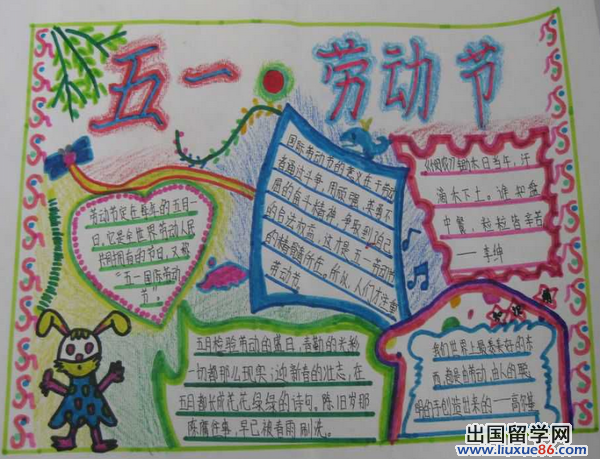 五一劳动节
劳动节定在每年的五月一
日,它是全世界劳动人民
共同拥有的节日,又称
“五一国际劳动
节”。
国际劳动节的意义在于劳动
者通过斗争,用顽强、英勇不
屈的奋斗精神,争取到了自己
的合法权益
的精髓所在。所以,人们才注重
劳动节。
《悯农》锄禾日当午,汗
滴禾下土。谁知盘
中餐,粒粒皆辛苦
——李绅
五月检验劳动的盛日,春勤的米彩
一切都那儿现实;迎新春的壮志,在
五月都长成花花绿绿的诗句。除旧岁那
陈腐往事,早已被春雨刷洗。
我们世界上最美好的东
西,都是由劳动,由人的聪
明的手创造出来的——高尔基
出国留学网
www.liuxue86.com